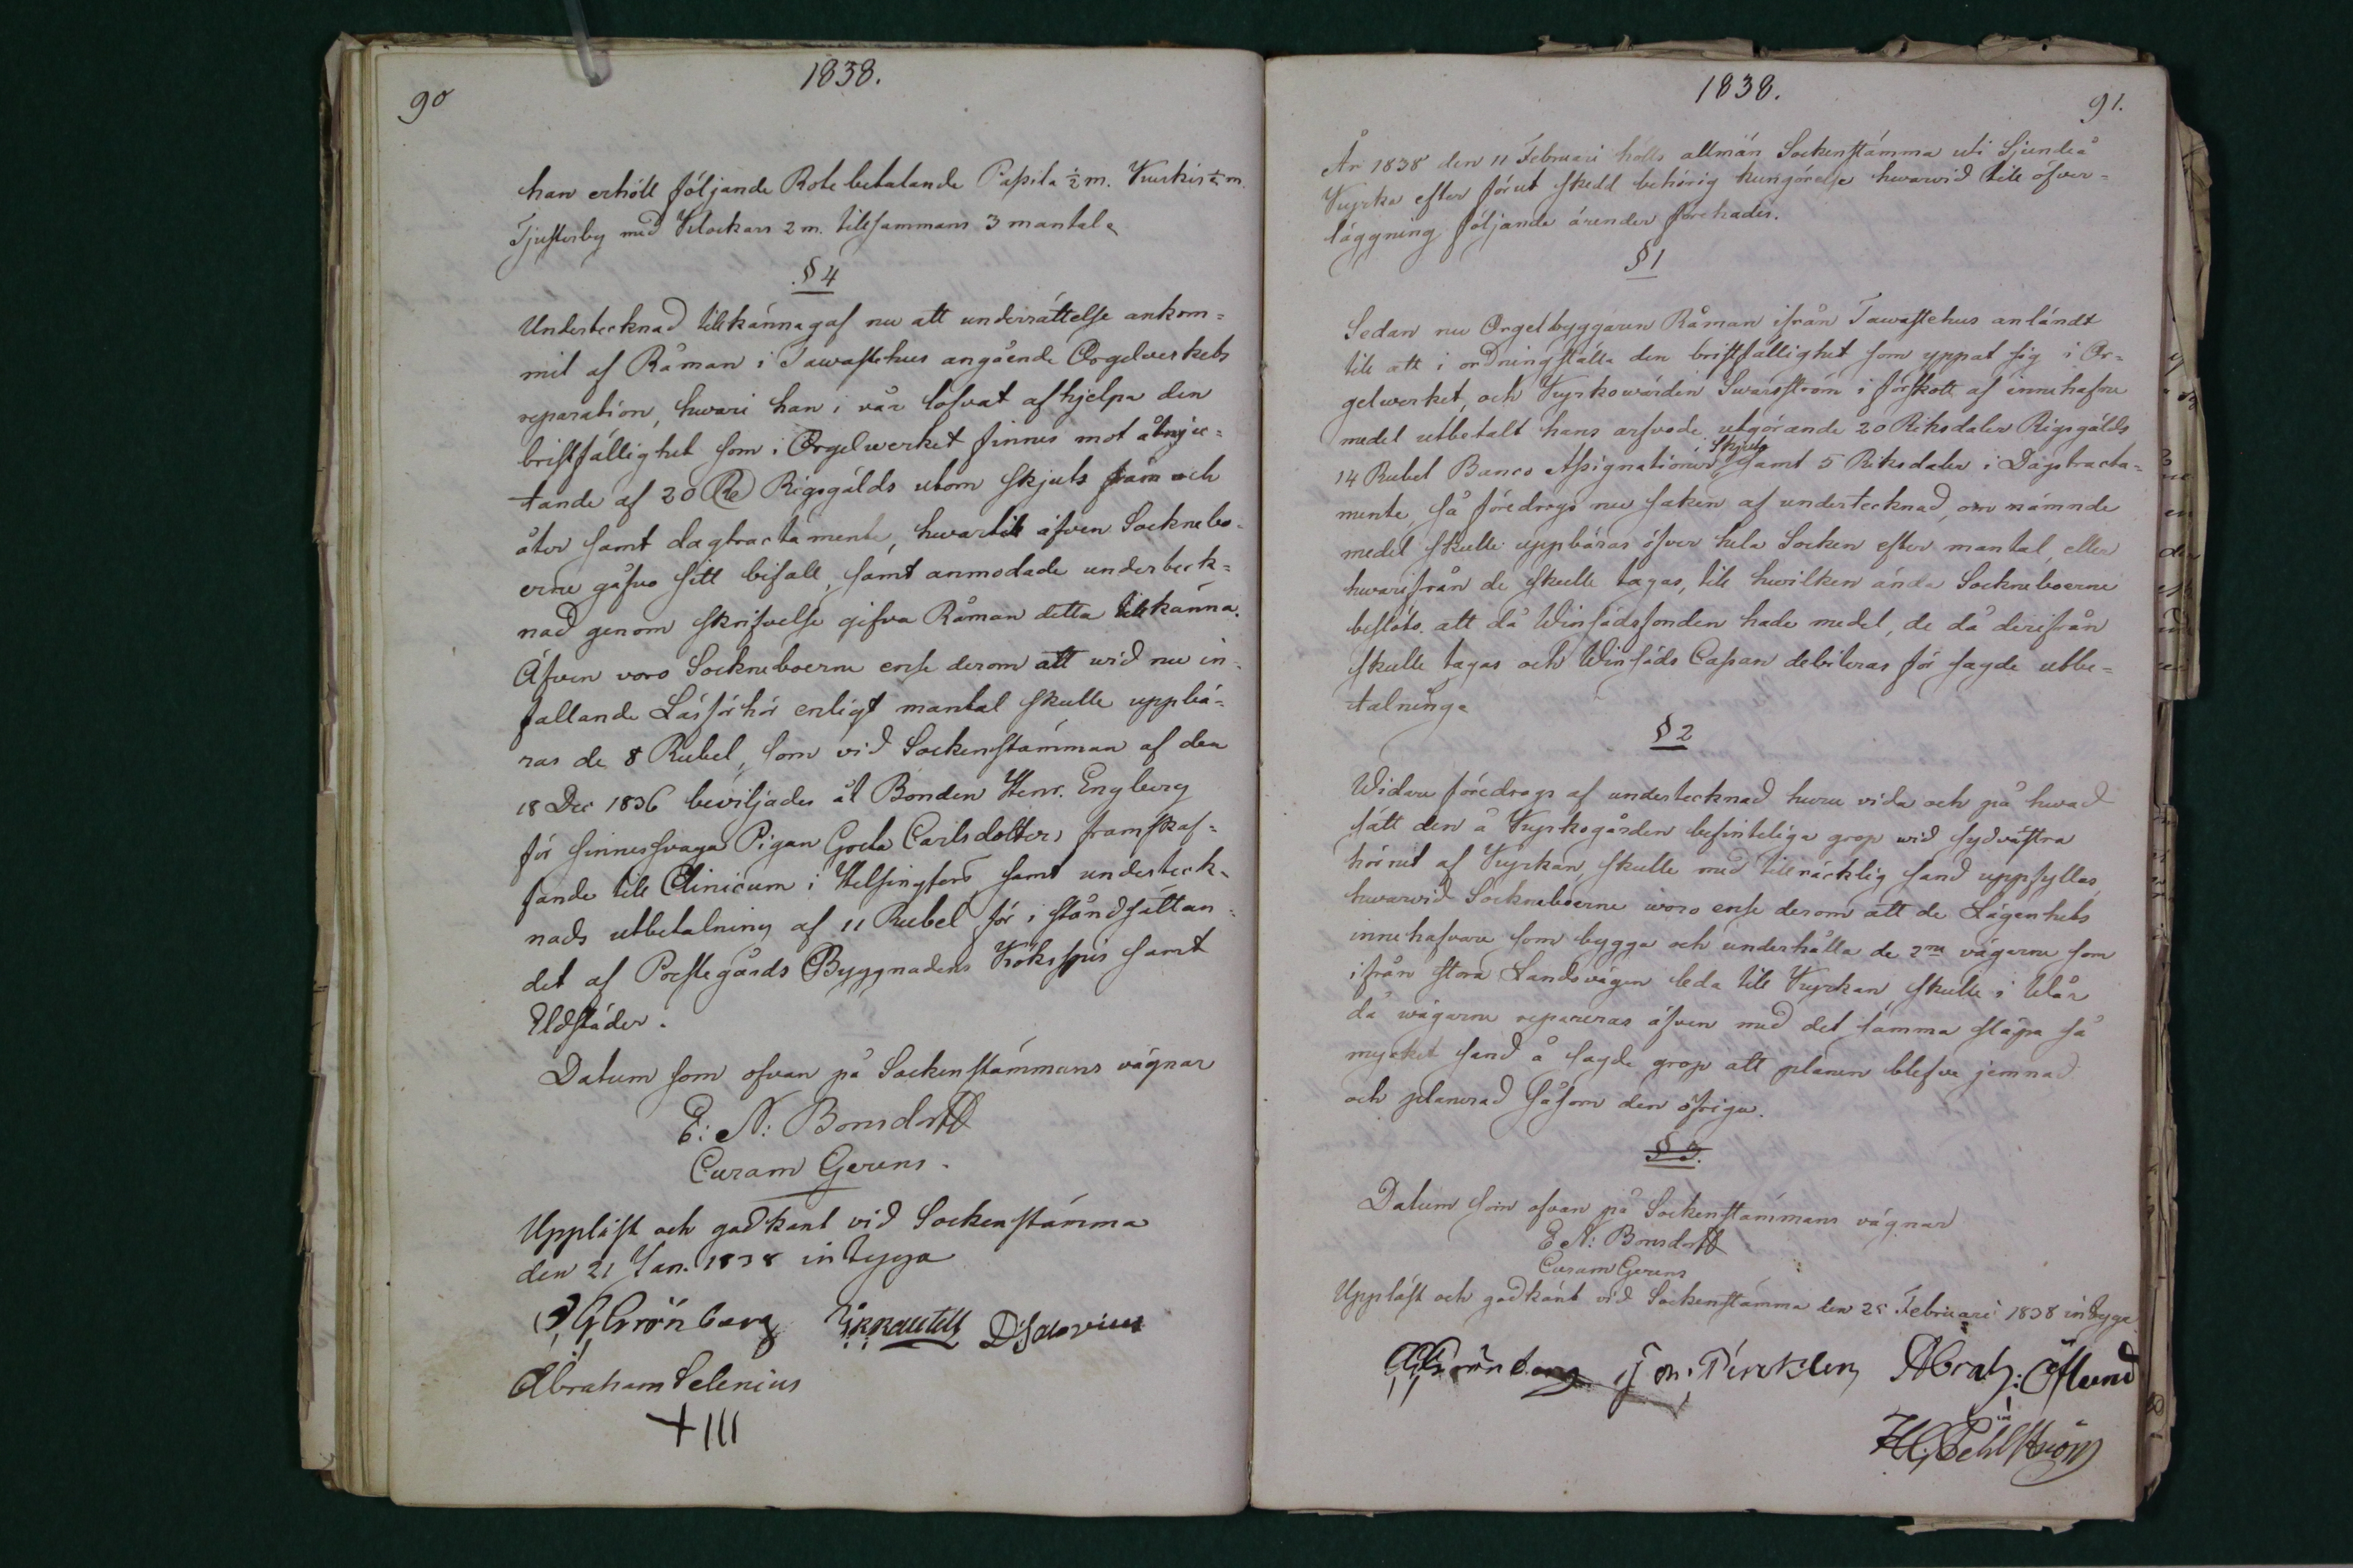 1838.
90
han erhöll följande Rotebetalande Passila ½ m. Kuskis ½ m.
Tjusterby med Klockars 2 m. tillsammans 3 mantal.
§ 4
Undertecknad tillkännagaf nu att underrättelse ankom=
mit af Råman i Tawastehus angående Orgelverkets
reparation, hwari han i vår lofvat afhjelpa den
bristfällighet som i Orgelwerket finnes mot åtnju=
tande af 20 Rd Rigsgälds utom skjuts fram och
åter samt dagtractamente, hwartill äfven Sockнebo=
erne gåfvo sitt bifall, samt anmodade underteck=
nad genom skrifvelse gifva Råman detta tillkänna.
Äfven voro Sockneboerne ense derom att wid nu in=
fallande Läsförhör enligt mantal skulle uppbä=
ras de 8 Rubel, som vid Sockenstämman af den
18 Dec 1836 beviljades åt Bonden Henr. Engberg
för sinnessvaga Pigan Greta Carlsdotters framskaf=
fande till Clinicum i Helsingfors, samt underteck=
nads utbetalning af 11 Rubel för i ståndsättan=
det af Prestegårds Byggnadens Köksspis samt
Eldstäder.
Datum som ofvan på Sockenstämmans vägnar
E: N: Bonsdorff
Curam Gerens.
Uppläst och godkänt vid Sockenstämma
den 21 Jan. 1838 intyga
Grönberg
Abraham Selenius
+ III
1838.
91.
År 1838 den 11 Februari hölls allmän Sockenstämma uti Sjundeå
Kyrka efter förut skedd behörig kungörelse hwarvid till öfver=
läggning följande ärender förehades.
§ 1
Sedan nu Orgelbyggaren Råman ifrån Tawastehus anländt
till att i ordningställa den bristfällighet som yppat sig i Or=
gelwerket, och Kyrkowärden Swarsström i förskott af innehafne
medel utbetalt hans arfvode utgörande 20 Riksdaler Rigsgälds,
14 Rubel Banco Assignationer i Skjuts samt 5 Riksdaler i Dagtracta=
mente, så föredrogs nu saken af undertecknad, om nämnde
medel skulle uppbäras öfver hela Socken efter mantal, eller
hwarifrån de skulle tagas, till hwilken ända Sockneboerne
beslöts att då Winsädsfonden hade medel, de då derifrån
skulle tagas och Winsäds Cassan debiteras för sagde utbe=
talning.
§ 2
Widare föredrogs af undertecknad huru vida och på hwad
sätt den å Kyrkogården befinteliga grop wid sydvästra
hörnet af Kyrkan, skulle med tillräcklig sand uppfyllas,
hwarvid Sockneboerne woro ense derom att de Lägenhets
innehafvare som bygga och underhålla de 2ne vägarne som
ifrån stora Landsvägen leda till Kyrkan skulle i Wår
då wägarne repareras äfven med det samma släpa så
mycket sand å sagde grop att planen blefve jemnad
och planerad såsom den öfriga.
§ 3.
Datum som ofvan på Sockenstämmans vägnar
E. N: Bonsdorff
Curam Gerens
Uppläst och godkänt vid Sockenstämma den 25 Februari 1838 intyga
Grönberg
Abrah: Öflund